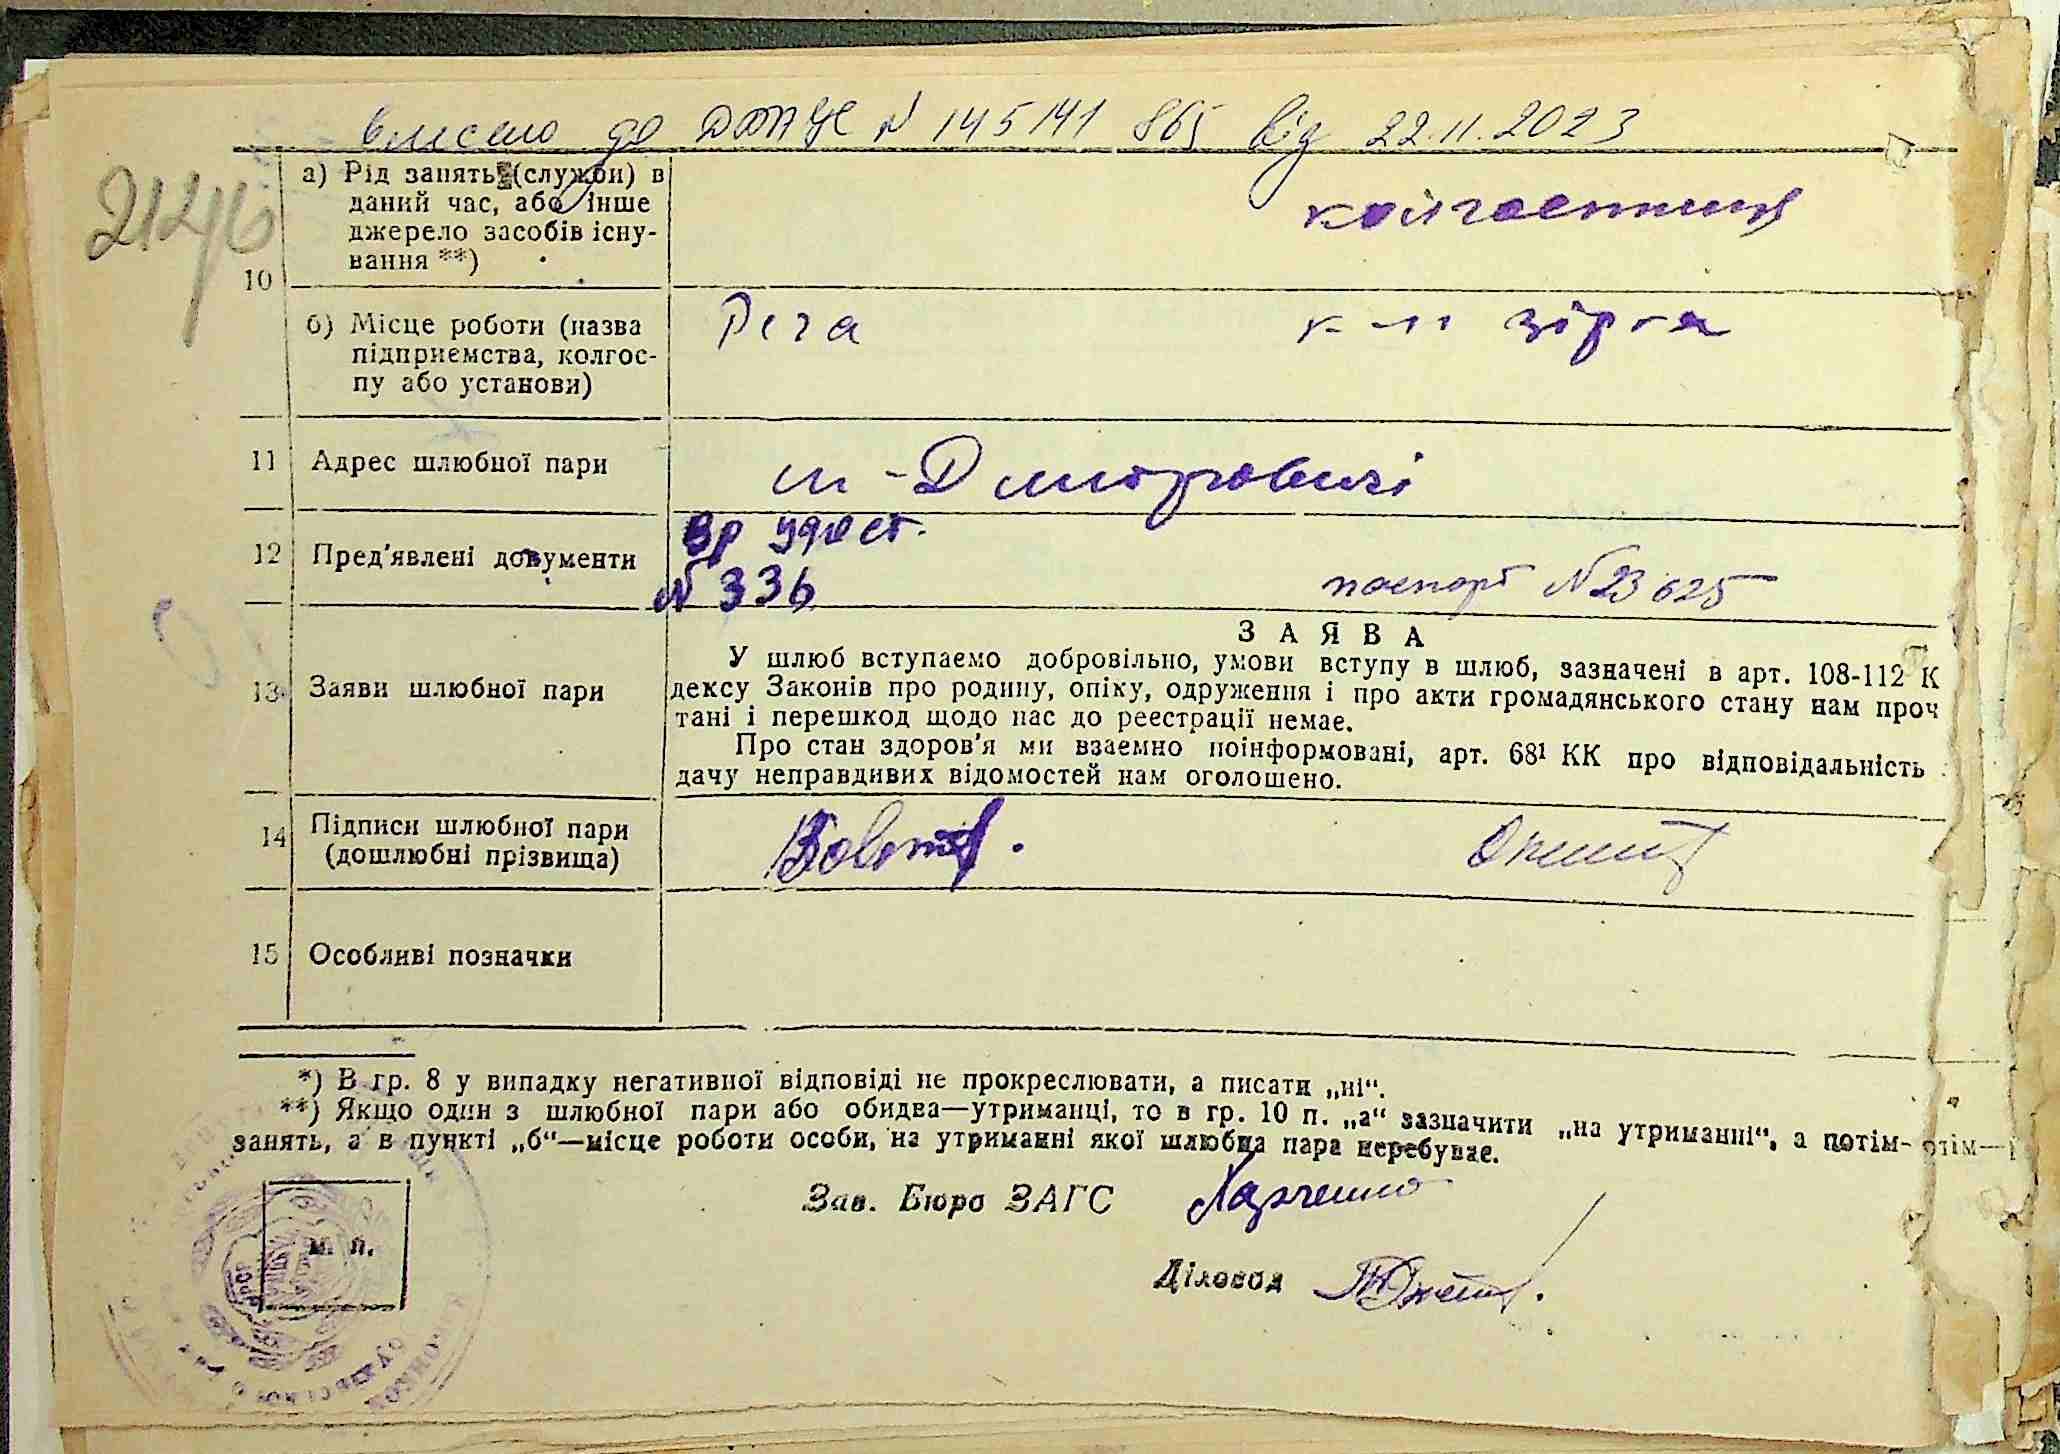 внесено до ДРАЦС N 145141 865 від 22.11.2023
а) Рід занять (служби) в
даний час, або інше
джерело засобів існу-
вання **)
колгоспниця
10
б) Місце роботи (назва
підприємства, колгос-
пу або установи)
Рета
к-п зірка
11 Адрес шлюбної пари
ст-Дмитровичі
12 Пред'явлені документи
вр удост.
N 336
паспорт N 23625
13 Заяви шлюбної пари
ЗАЯВА
У шлюб вступаємо добровільно, умови вступу в шлюб, зазначені в арт. 108-112 К
дексу Законів про родину, опіку, одруження і про акти громадянського стану нам проч
тані і перешкод щодо нас до реєстрації немає.
Про стан здоров'я ми взаємно поінформовані, арт. 68¹ КК про відповідальність
дачу неправдивих відомостей нам оголошено.
14 Підписи шлюбної пари
(дошлюбні прізвища)
15 Особливі позначки
*) В гр. 8 у випадку негативної відповіді не прокреслювати, а писати „ні“.
**) Якщо один з шлюбної пари або обидва—утриманці, то в гр. 10 п. „а“ зазначити „на утриманні“, а потім-
занять, а в пункті „б“—місце роботи особи, на утриманні якої шлюбна пара перебуває.
Зав. Бюро ЗАГС
м. п.
Діловод